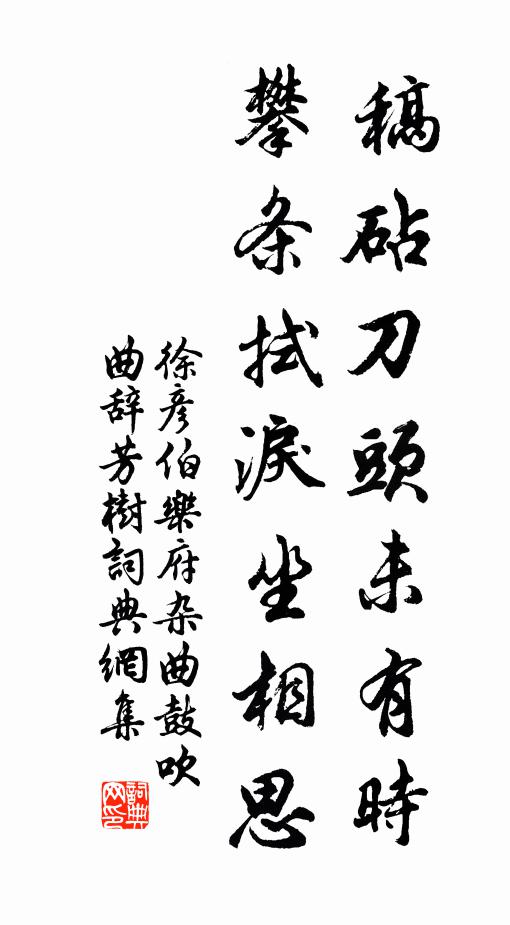 稿砧刀頭未有時
攀条拭淚坐相思
徐彦伯樂府杂曲鼓吹
曲辞芳樹詞典網集
詞典网印